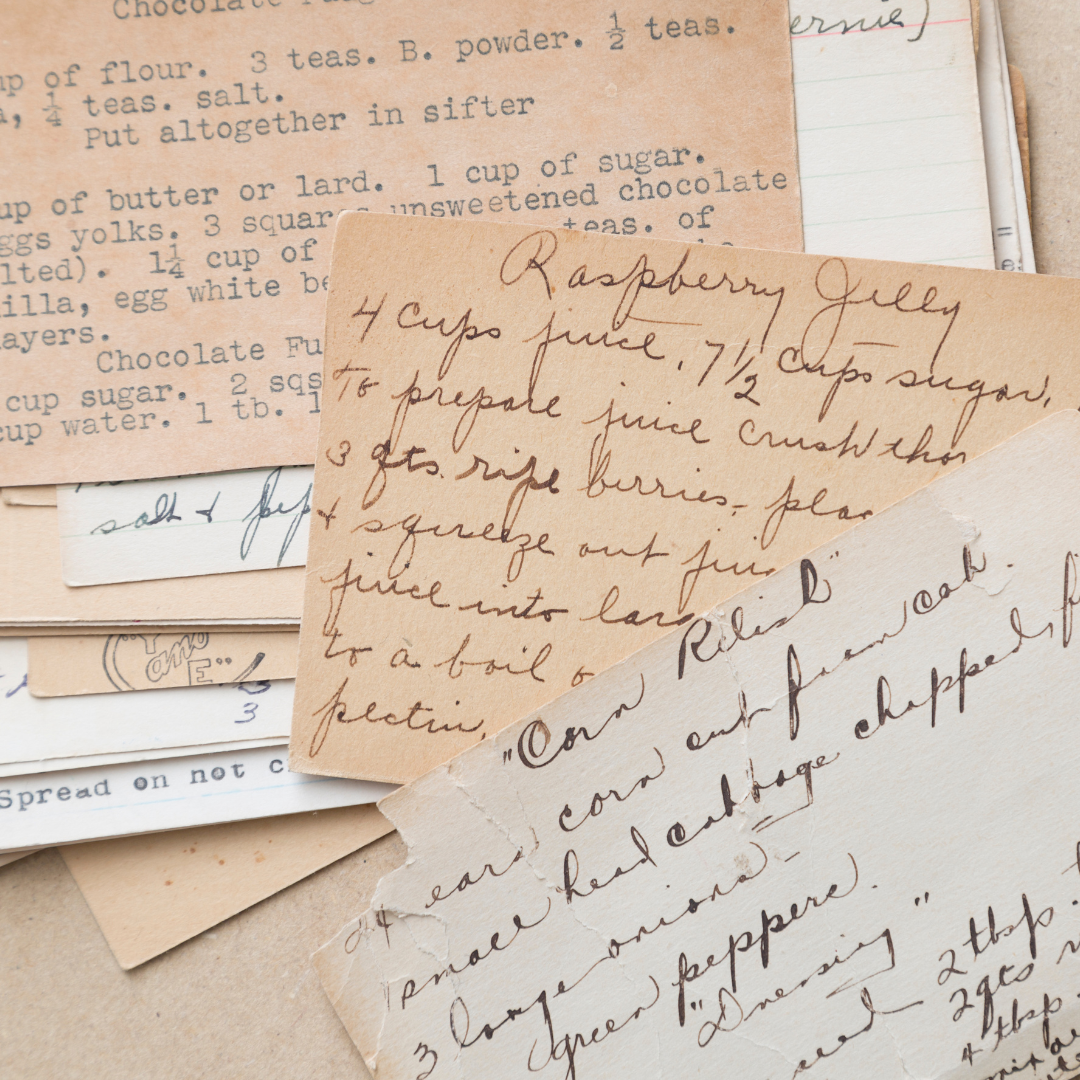 Chocolate
up of flour. 3 teas. B. powder. ½ teas.
¼ teas. salt.
Put altogether in sifter
up of butter or lard. 1 cup of sugar.
ggs yolks. 3 squares unsweetened chocolate
lted). 1¼ cup of teas. of
illa, egg white be
ayers.
Chocolate Fu
cup sugar. 2 sqs
cup water. 1 tb.
ernie)
salt + pep
"Y
and
E"
3
Spread on not c
Raspberry Jelly
4 cups juice, 7 1/2 cups sugar,
To prepare juice crush thor
3 qts. ripe berries, plac
+ squeeze out juic
juice into larg
to a boil
pectin,
"Corn Relish"
24 ears corn cut from cob.
1 small head cabbage chopped fi
3 large onions
green peppers.
"Dressing"
2 tbsp.
2 qts
4 tbsp